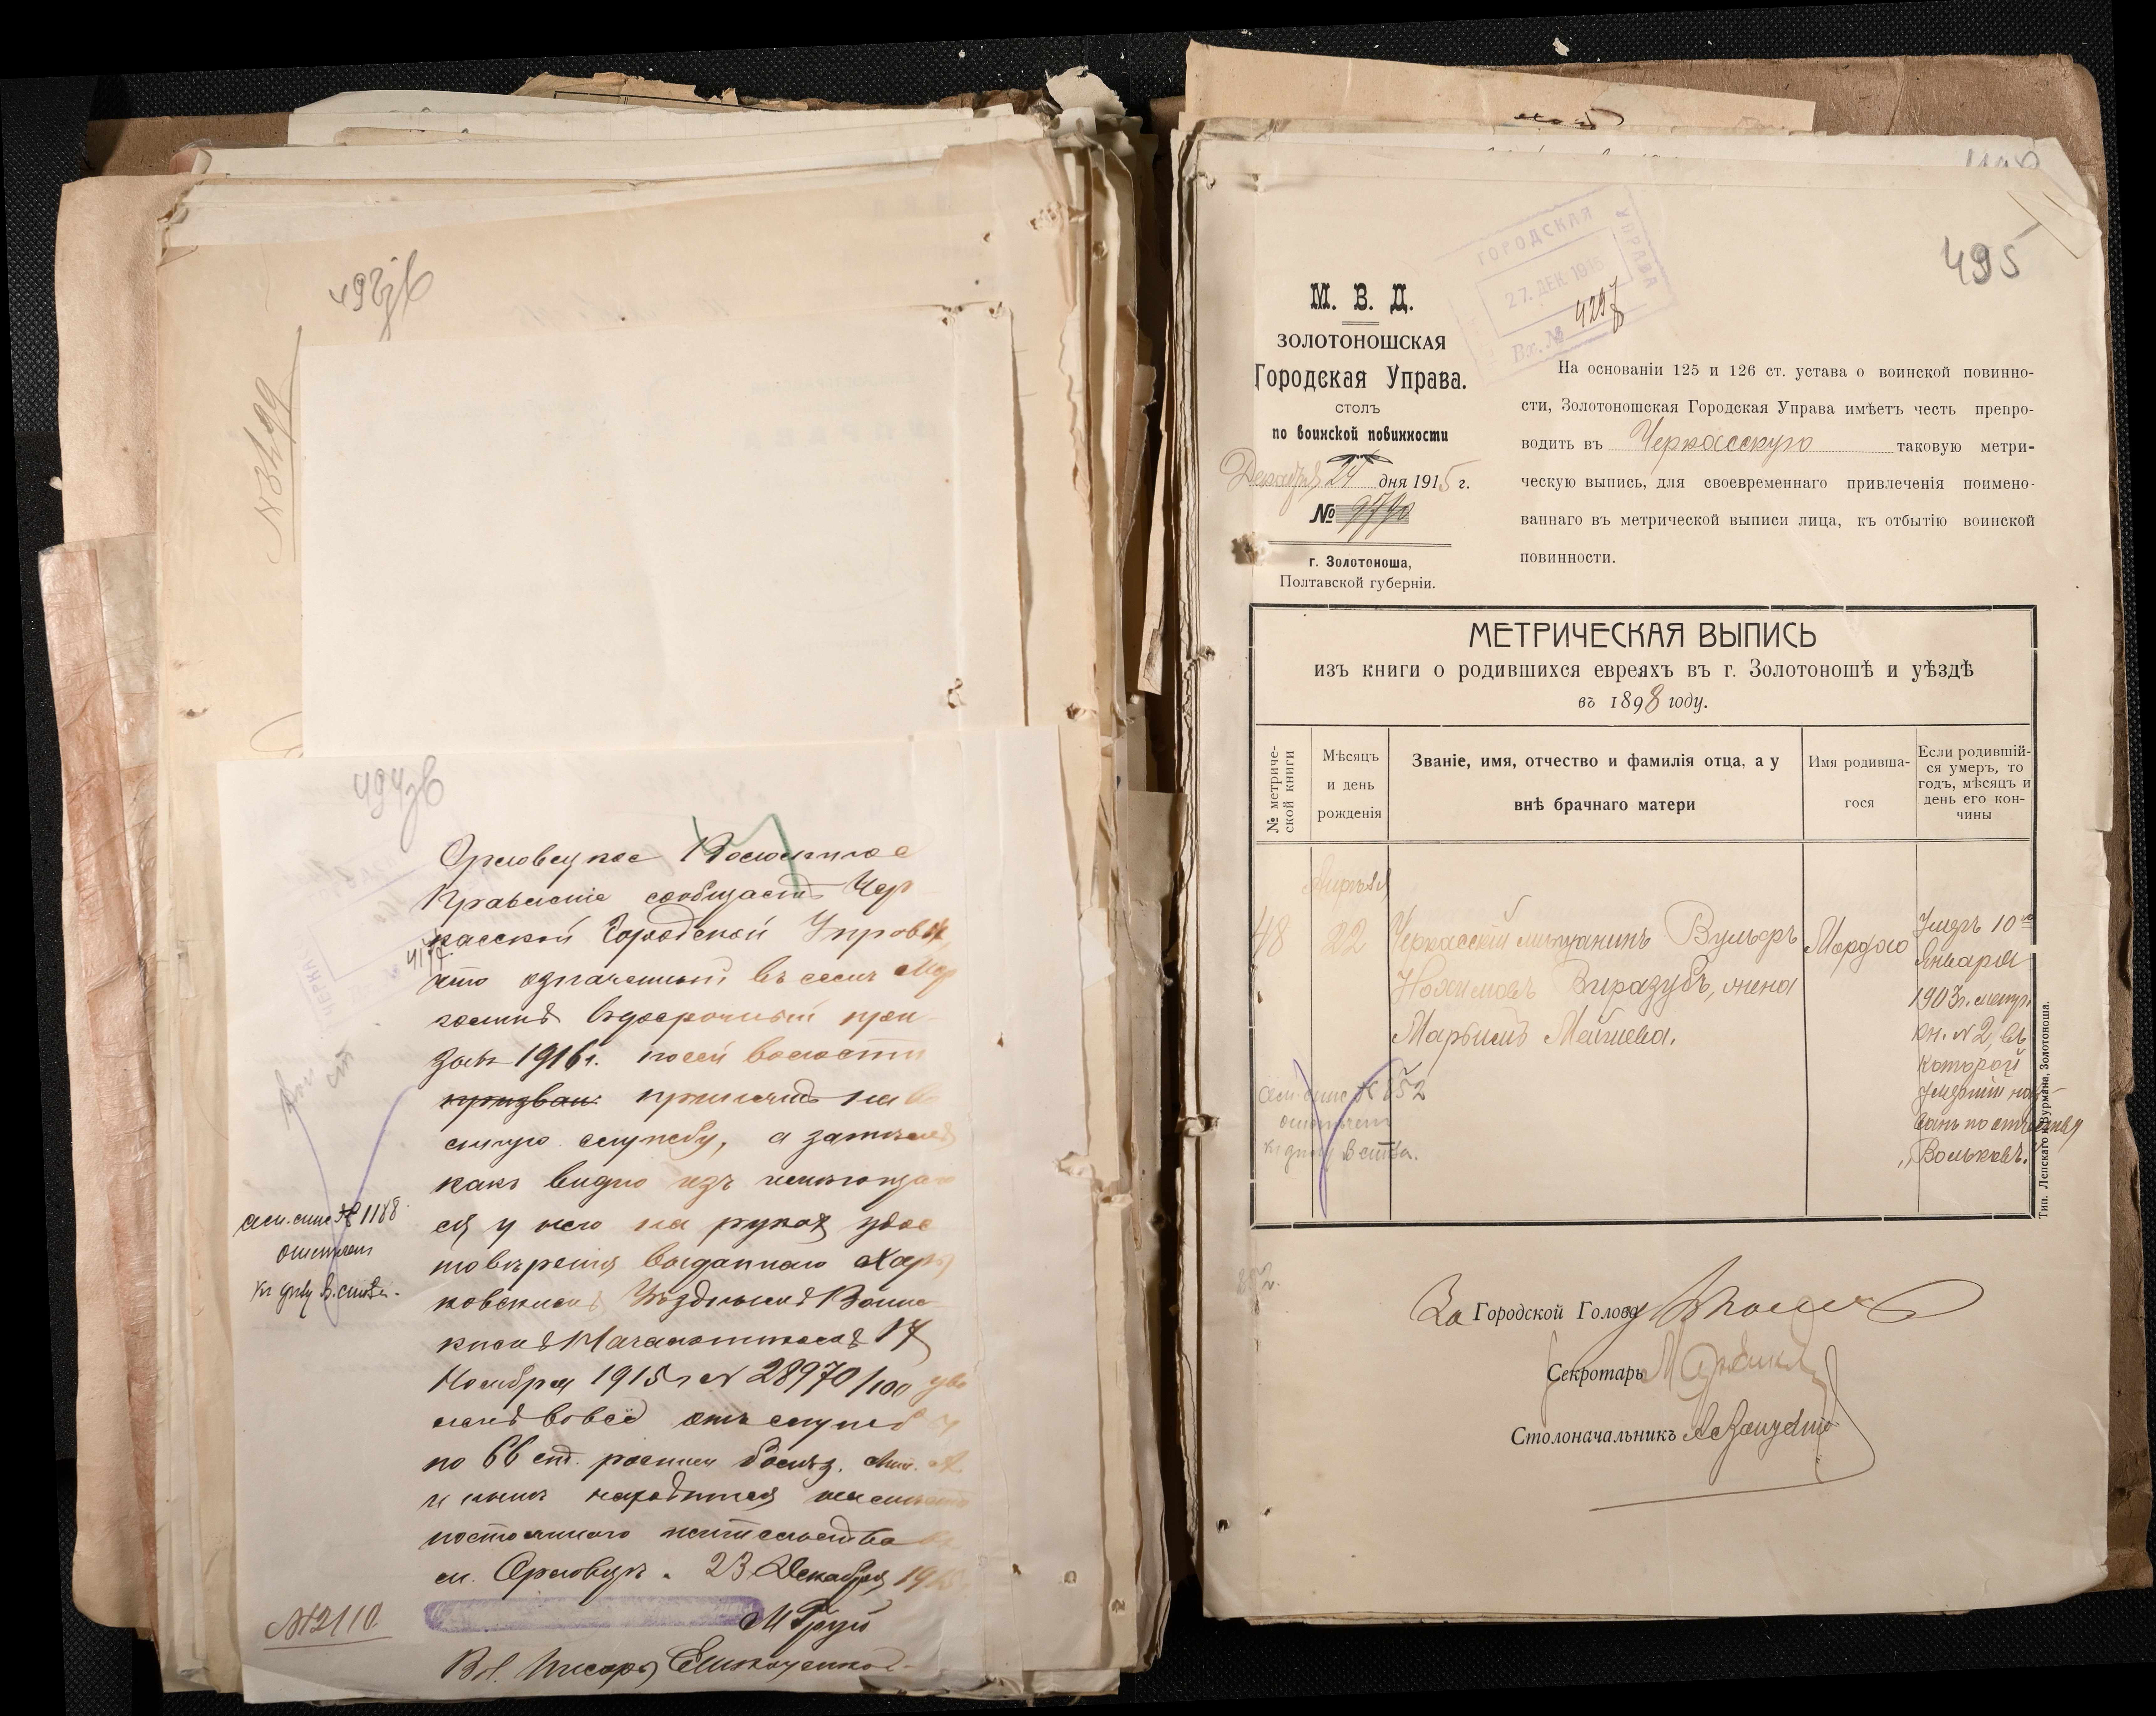 492зв
№ 8499
494зв
Орловецкое Волостное
Правление сообщает Чер
касской Городской Управѣ,
41
что означенный в семъ Мор
досрочный при
зывъ 1916 г. волости
призван принятъ на во
енную службу, а затемъ
какъ видно изъ имѣющаго
ся у него на руках удос
товѣрения выданнаго Харь
ковскимъ Уѣзднымъ Воинс
кимъ Начальникомъ 17
Ноября 1915 г № 28970/100 уво
ленъ вовсе отъ службы
по 66 ст. росписи болѣз.
постоянного жительства
м. Орловцѣ. 23 Декабря 1915
сем. спис № 1188
отмѣтчен
№ 2110
Вл. Писарь
495
ГОРОДСКАЯ
УПРАВА
27. ДЕК. 1915
Вх. № 4297
М. В. Д.
ЗОЛОТОНОШСКАЯ
Городская Управа.
СТОЛЪ
по воинской повинности
Декабря 24 дня 1915 г.
№ 9790
г. Золотоноша,
Полтавской губернiи.
На основанiи 125 и 126 ст. устава о воинской повинно-
сти, Золотоношская Городская Управа имѣетъ честь препро-
водить въ Черкасскую таковую метри-
ческую выпись, для своевременнаго привлеченiя поимено-
ваннаго въ метрической выписи лица, къ отбытiю воинской
повинности.
МЕТРИЧЕСКАЯ ВЫПИСЬ
изъ книги о родившихся евреяхъ въ г. Золотоношѣ и уѣздѣ
въ 1898 году.
№ метриче-
ской книги
Мѣсяцъ
и день
рожденiя
Званiе, имя, отчество и фамилiя отца, а у
внѣ брачнаго матери
Имя родивша-
гося
Если родившiй-
ся умеръ, то
годъ, мѣсяцъ и
день его кон-
чины
48
Апрѣля
22
Черкасскiй мѣщанинъ Вульфъ
Нохимовъ Виразубъ, жена
Марьимъ Мейшева.
Мордхо
Умеръ 10го
Января
1903 г. метр.
кн. № 2, въ
которой
умершiй наз
ванъ по отчеству
„Вольковъ.
сем. спис № 852
отмѣтчен
852.
Тип. Лепскаго и Вурмана, Золотоноша.
За Городской Голова
Секротарь
Столоначальникъ